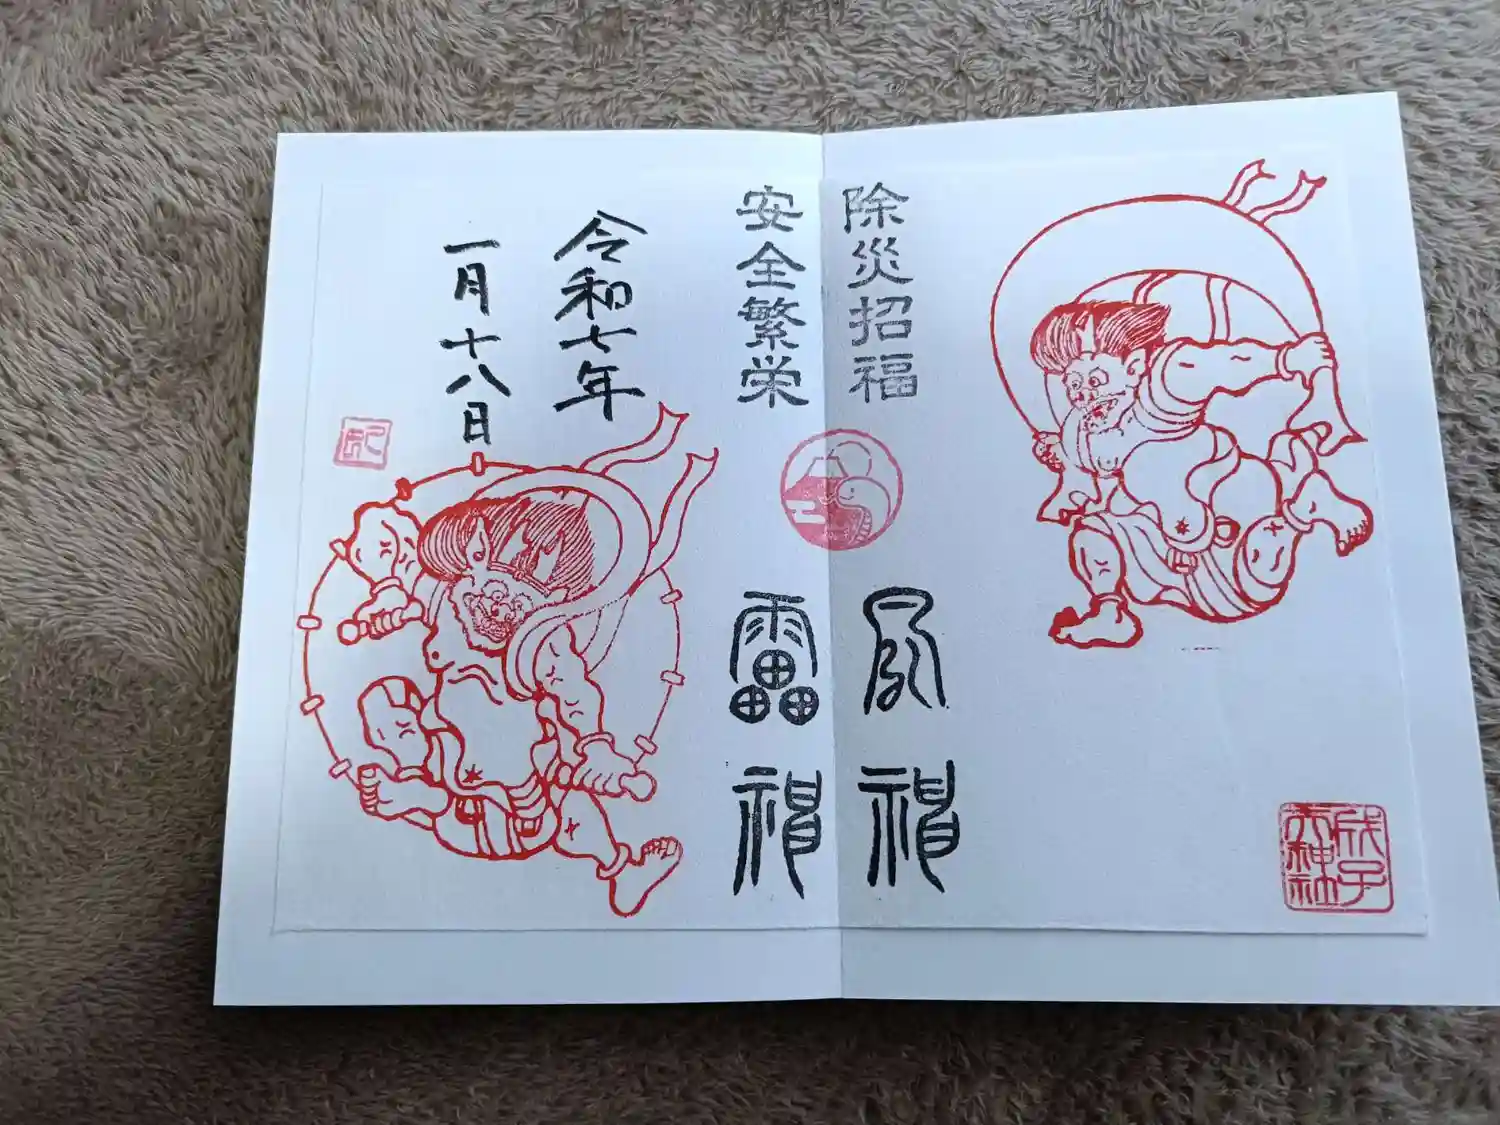 成子
天神社
除災招福
風神
安全繁栄
雷神
令和七年
一月十八日